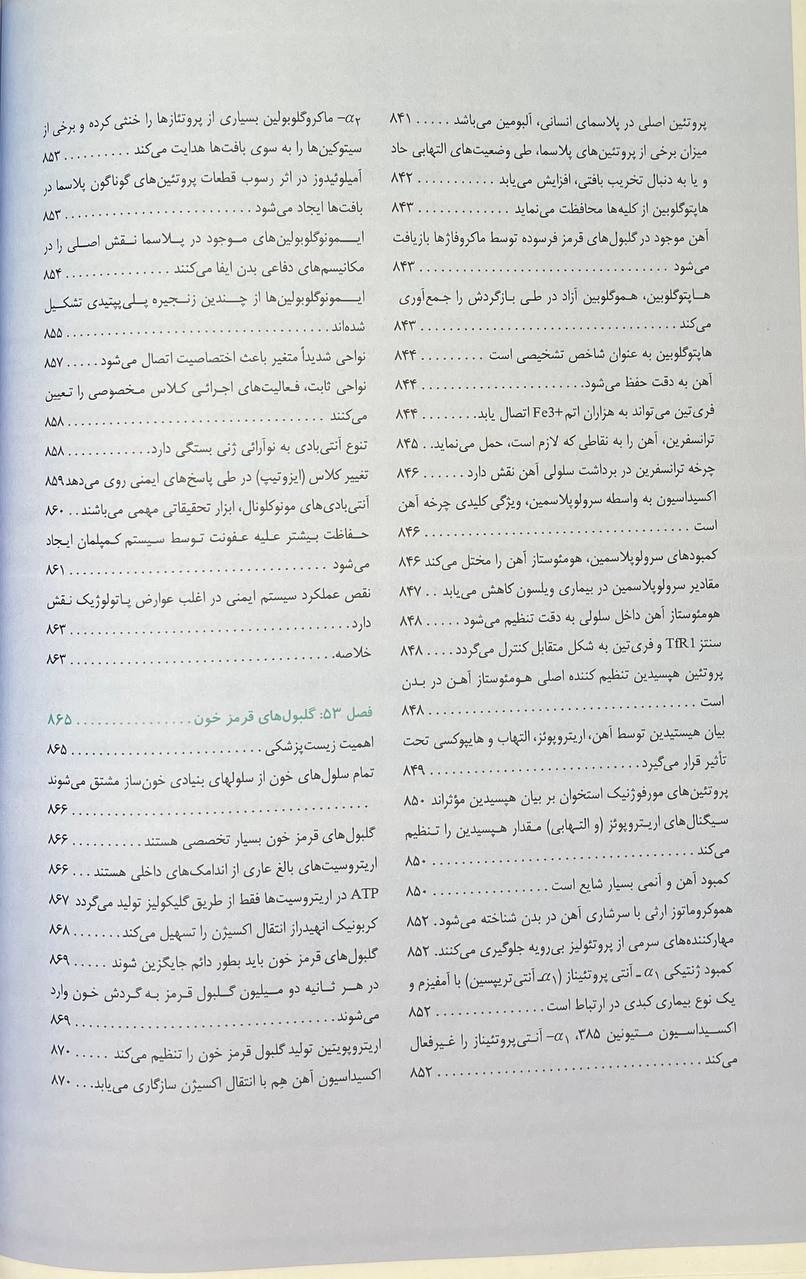 پروتئین اصلی در پلاسمای انسانی، آلبومین می‌باشد ..... ۸۴۱
میزان برخی از پروتئین‌های پلاسما، طی وضعیت‌های التهابی حاد
و یا به دنبال تخریب بافتی، افزایش می‌یابد ........... ۸۴۲
هاپتوگلوبین از کلیه‌ها محافظت می‌نماید ............. ۸۴۳
آهن موجود در گلبول‌های قرمز فرسوده توسط ماکروفاژها بازیافت
می‌شود .................................. ۸۴۳
هاپتوگلوبین، هموگلوبین آزاد در طی بازگردش را جمع‌آوری
می‌کند .................................. ۸۴۳
هاپتوگلوبین به عنوان شاخص تشخیصی است ......... ۸۴۴
آهن به دقت حفظ می‌شود....................... ۸۴۴
فری‌تین می‌تواند به هزاران اتم Fe3+ اتصال یابد........ ۸۴۴
ترانسفرین، آهن را به نقاطی که لازم است، حمل می‌نماید.. ۸۴۵
چرخه ترانسفرین در برداشت سلولی آهن نقش دارد ...... ۸۴۶
اکسیداسیون به واسطه سرولوپلاسمین، ویژگی کلیدی چرخه آهن
است .................................... ۸۴۶
کمبودهای سرولوپلاسمین، هومئوستاز آهن را مختل می‌کند ۸۴۶
مقادیر سرولوپلاسمین در بیماری ویلسون کاهش می‌یابد .. ۸۴۷
هومئوستاز آهن داخل سلولی به دقت تنظیم می‌شود ..... ۸۴۸
سنتز TfR1 و فری‌تین به شکل متقابل کنترل می‌گردد.... ۸۴۸
پروتئین هپسیدین تنظیم کننده اصلی هومئوستاز آهن در بدن
است .................................... ۸۴۸
بیان هپستیدین توسط آهن، اریتروپوئز، التهاب و هایپوکسی تحت
تأثیر قرار می‌گیرد........................... ۸۴۹
پروتئین‌های مورفوژنیک استخوان بر بیان هپسیدین مؤثراند ۸۵۰
سیگنال‌های اریتروپوئز (و التهابی) مقدار هپسیدین را تنظیم
می‌کند .................................. ۸۵۰
کمبود آهن و آنمی بسیار شایع است ................ ۸۵۰
هموکروماتوز ارثی با سرشاری آهن در بدن شناخته می‌شود. ۸۵۲
مهارکننده‌های سرمی از پروتئولیز بی‌رویه جلوگیری می‌کنند. ۸۵۲
کمبود ژنتیکی α۱ ـ آنتی پروتئیناز (α۱ـآنتی‌تریپسین) با آمفیزم و
یک نوع بیماری کبدی در ارتباط است............... ۸۵۲
اکسیداسیون متیونین ۳۸۵، α۱– آنتی‌پروتئیناز را غیرفعال
می‌کند .................................. ۸۵۲
α۲– ماکروگلوبولین بسیاری از پروتئازها را خنثی کرده و برخی از
سیتوکین‌ها را به سوی بافت‌ها هدایت می‌کند .......... ۸۵۳
آمیلوئیدوز در اثر رسوب قطعات پروتئین‌های گوناگون پلاسما در
بافت‌ها ایجاد می‌شود ......................... ۸۵۳
ایمونوگلوبولین‌های موجود در پلاسما نقش اصلی را در
مکانیسم‌های دفاعی بدن ایفا می‌کنند .............. ۸۵۴
ایمونوگلوبولین‌ها از چندین زنجیره پلی‌پپتیدی تشکیل
شده‌اند .................................. ۸۵۵
نواحی شدیداً متغیر باعث اختصاصیت اتصال می‌شود..... ۸۵۷
نواحی ثابت، فعالیت‌های اجرائی کلاس مخصوصی را تعیین
می‌کنند ................................. ۸۵۸
تنوع آنتی‌بادی به نوآرائی ژنی بستگی دارد............ ۸۵۸
تغییر کلاس (ایزوتیپ) در طی پاسخ‌های ایمنی روی می‌دهد۸۵۹
آنتی‌بادی‌های مونوکلونال، ابزار تحقیقاتی مهمی می‌باشند.. ۸۶۰
حفاظت بیشتر علیه عفونت توسط سیستم کمپلمان ایجاد
می‌شود ................................. ۸۶۱
نقص عملکرد سیستم ایمنی در اغلب عوارض پاتولوژیک نقش
دارد.................................... ۸۶۳
خلاصه.................................. ۸۶۳
فصل ۵۳: گلبول‌های قرمز خون ................ ۸۶۵
اهمیت زیست‌پزشکی ........................ ۸۶۵
تمام سلول‌های خون از سلولهای بنیادی خون‌ساز مشتق می‌شوند
....................................... ۸۶۶
گلبول‌های قرمز خون بسیار تخصصی هستند .......... ۸۶۶
اریتروسیت‌های بالغ عاری از اندامک‌های داخلی هستند ... ۸۶۶
ATP در اریتروسیت‌ها فقط از طریق گلیکولیز تولید می‌گردد ۸۶۷
کربونیک انهیدراز انتقال اکسیژن را تسهیل می‌کند....... ۸۶۸
گلبول‌های قرمز خون باید بطور دائم جایگزین شوند ..... ۸۶۹
در هر ثانیه دو میلیون گلبول قرمز به گردش خون وارد
می‌شوند................................. ۸۶۹
اریتروپویتین تولید گلبول قرمز خون را تنظیم می‌کند ..... ۸۷۰
اکسیداسیون آهن هِم با انتقال اکسیژن سازگاری می‌یابد... ۸۷۰